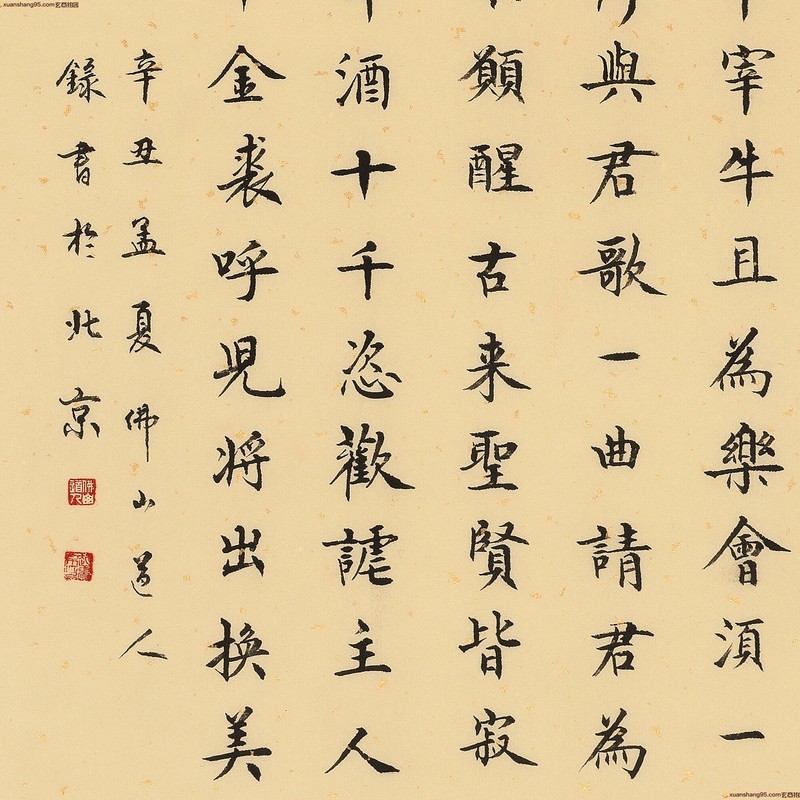 宰牛且為樂會湏一
與君歌一曲請君為
願醒古来聖賢皆寂
酒十千恣歡謔主人
金裘呼兒将出換美
辛丑孟夏佛山道人
錄書於北京
xuanshang95.com
xuanshang95.com